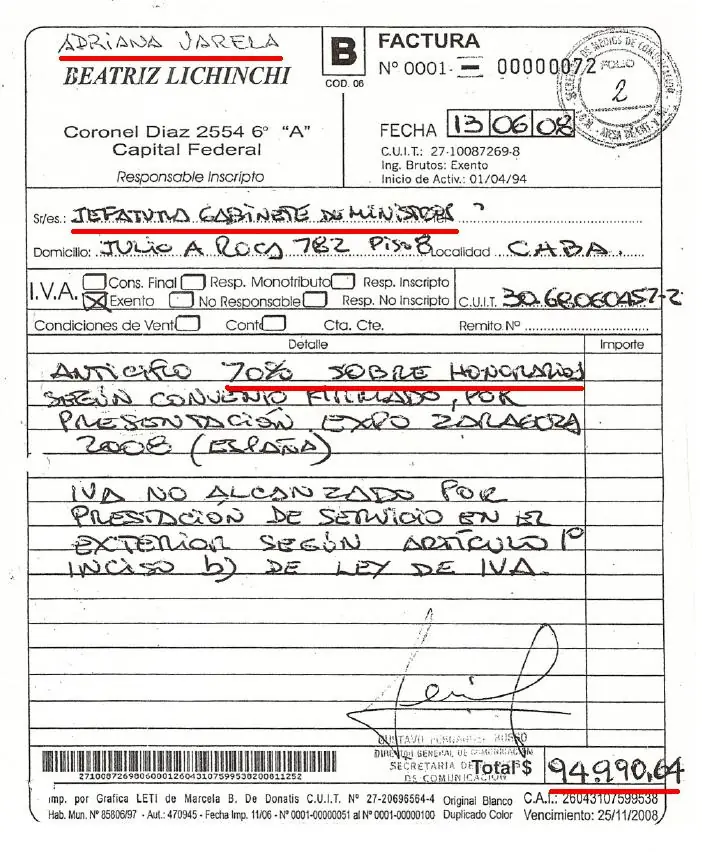 ADRIANA VARELA
BEATRIZ LICHINCHI
Coronel Diaz 2554 6º "A"
Capital Federal
Responsable Inscripto
B
COD. 06
FACTURA
Nº 0001- 00000072
FOLIO
2
FECHA 13 06 08
C.U.I.T.: 27-10087269-8
Ing. Brutos: Exento
Inicio de Activ.: 01/04/94
Sr/es.: JEFATURA GABINETE DE MINISTROS
Domicilio: JULIO A ROCA 782 PISO 8 Localidad CABA.
I.V.A. Cons. Final Resp. Monotributo Resp. Inscripto
Exento No Responsable Resp. No Inscripto C.U.I.T. 30.68060457-2
Condiciones de Vent Cont Cta. Cte. Remito Nº
Detalle Importe
ANTICIPO 70% SOBRE HONORARIOS
SEGÚN CONVENIO FIRMADO, POR
PRESENTACIÓN EXPO ZARAGOZA
2008 (ESPAÑA)
IVA NO ALCANZADO POR
PRESTACIÓN DE SERVICIO EN EL
EXTERIOR SEGÚN ARTÍCULO 1º
INCISO b) DE LEY DE IVA.
DIRECTOR GENERAL DE COMUNICACION
SECRETARIA DE
DE COMUNICACION
Total $ 94.990,64
27100872698060001260431075995382008 11252
Imp. por Grafica LETI de Marcela B. De Donatis C.U.I.T. Nº 27-20696564-4 Original Blanco C.A.I.: 26043107599538
Hab. Mun. Nº 85806/97 - Aut.: 470945 - Fecha Imp. 11/06 - Nº 0001-00000051 al Nº 0001-00000100 Duplicado Color Vencimiento: 25/11/2008